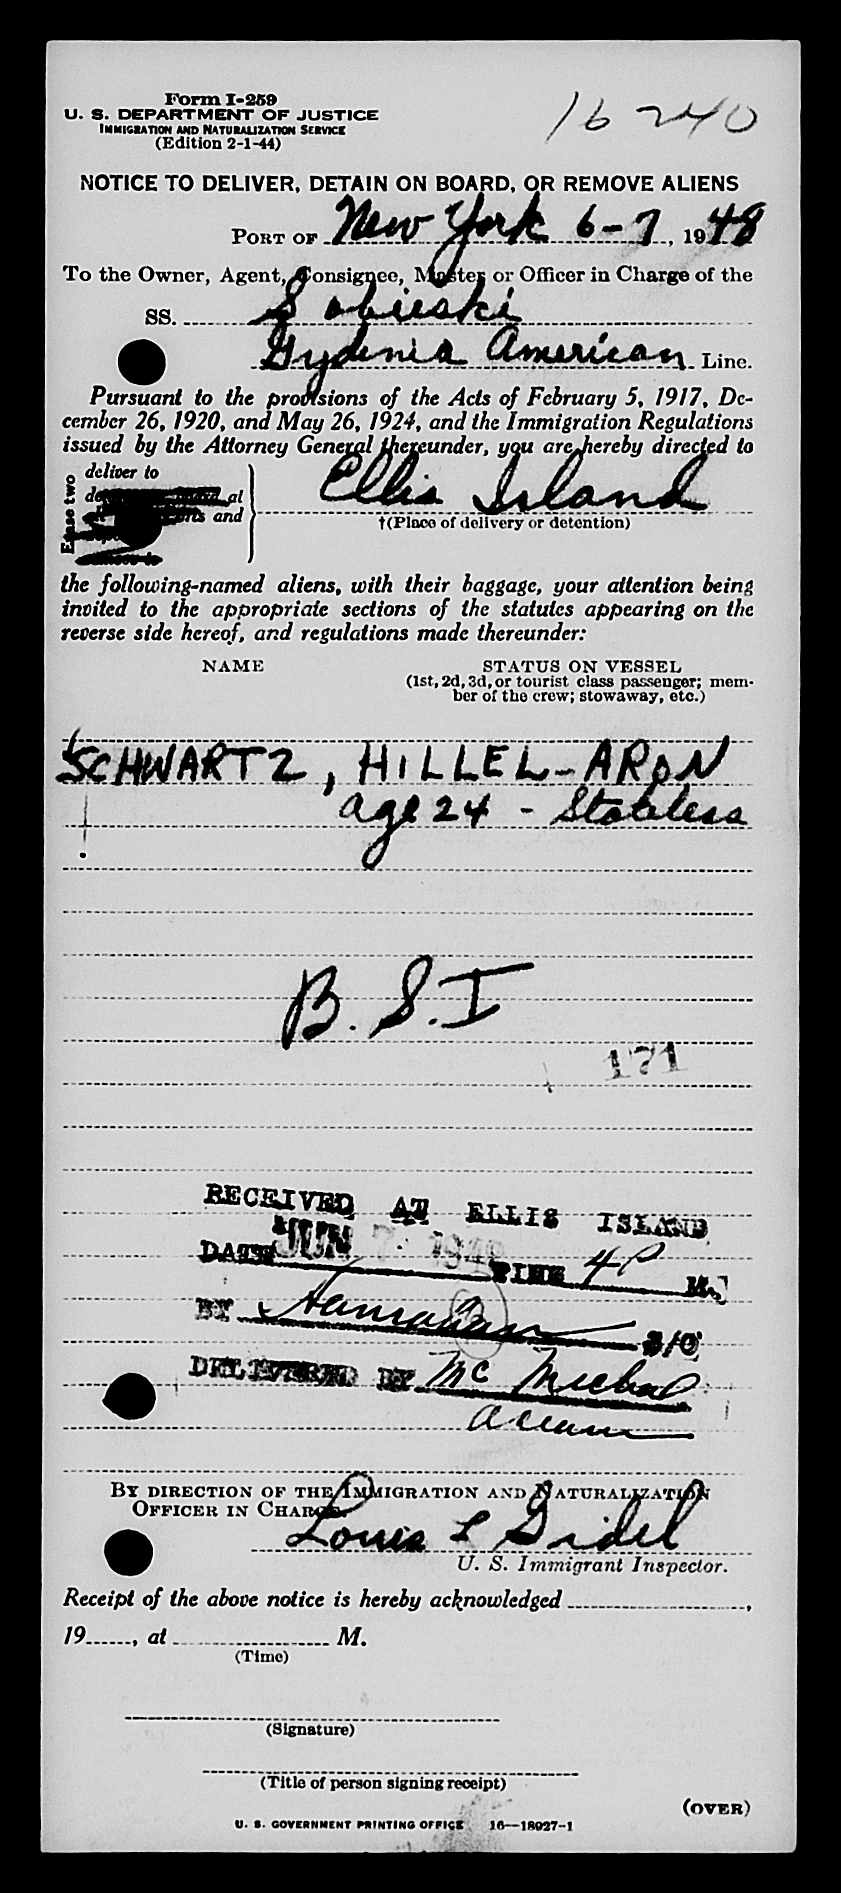 Form I-259
U. S. DEPARTMENT OF JUSTICE
IMMIGRATION AND NATURALIZATION SERVICE
(Edition 2-1-44)
16 240
NOTICE TO DELIVER, DETAIN ON BOARD, OR REMOVE ALIENS
PORT OF New York 6-7, 1948
To the Owner, Agent, Consignee, Master or Officer in Charge of the
SS. Sobieski
Gydenia American Line.
Pursuant to the provisions of the Acts of February 5, 1917, De-
cember 26, 1920, and May 26, 1924, and the Immigration Regulations
issued by the Attorney General thereunder, you are hereby directed to
Erase two
deliver to
at
and
Ellis Island
†(Place of delivery or detention)
the following-named aliens, with their baggage, your attention being
invited to the appropriate sections of the statutes appearing on the
reverse side hereof, and regulations made thereunder:
NAME STATUS ON VESSEL
(1st, 2d, 3d, or tourist class passenger; mem-
ber of the crew; stowaway, etc.)
SCHWARTZ, HILLEL-ARON
age 24 - Stateless
B. S. I
171
RECEIVED AT ELLIS ISLAND
DATE JUN 7 1948 TIME 4 P M.
BY
DELIVERED BY Mc Micheal
By direction of the Immigration and Naturalization
Officer in Charge.
Louis L Gidel
U. S. Immigrant Inspector.
Receipt of the above notice is hereby acknowledged ,
19 , at M.
(Time)
(Signature)
(Title of person signing receipt)
(OVER)
U. S. GOVERNMENT PRINTING OFFICE 16—18027-1